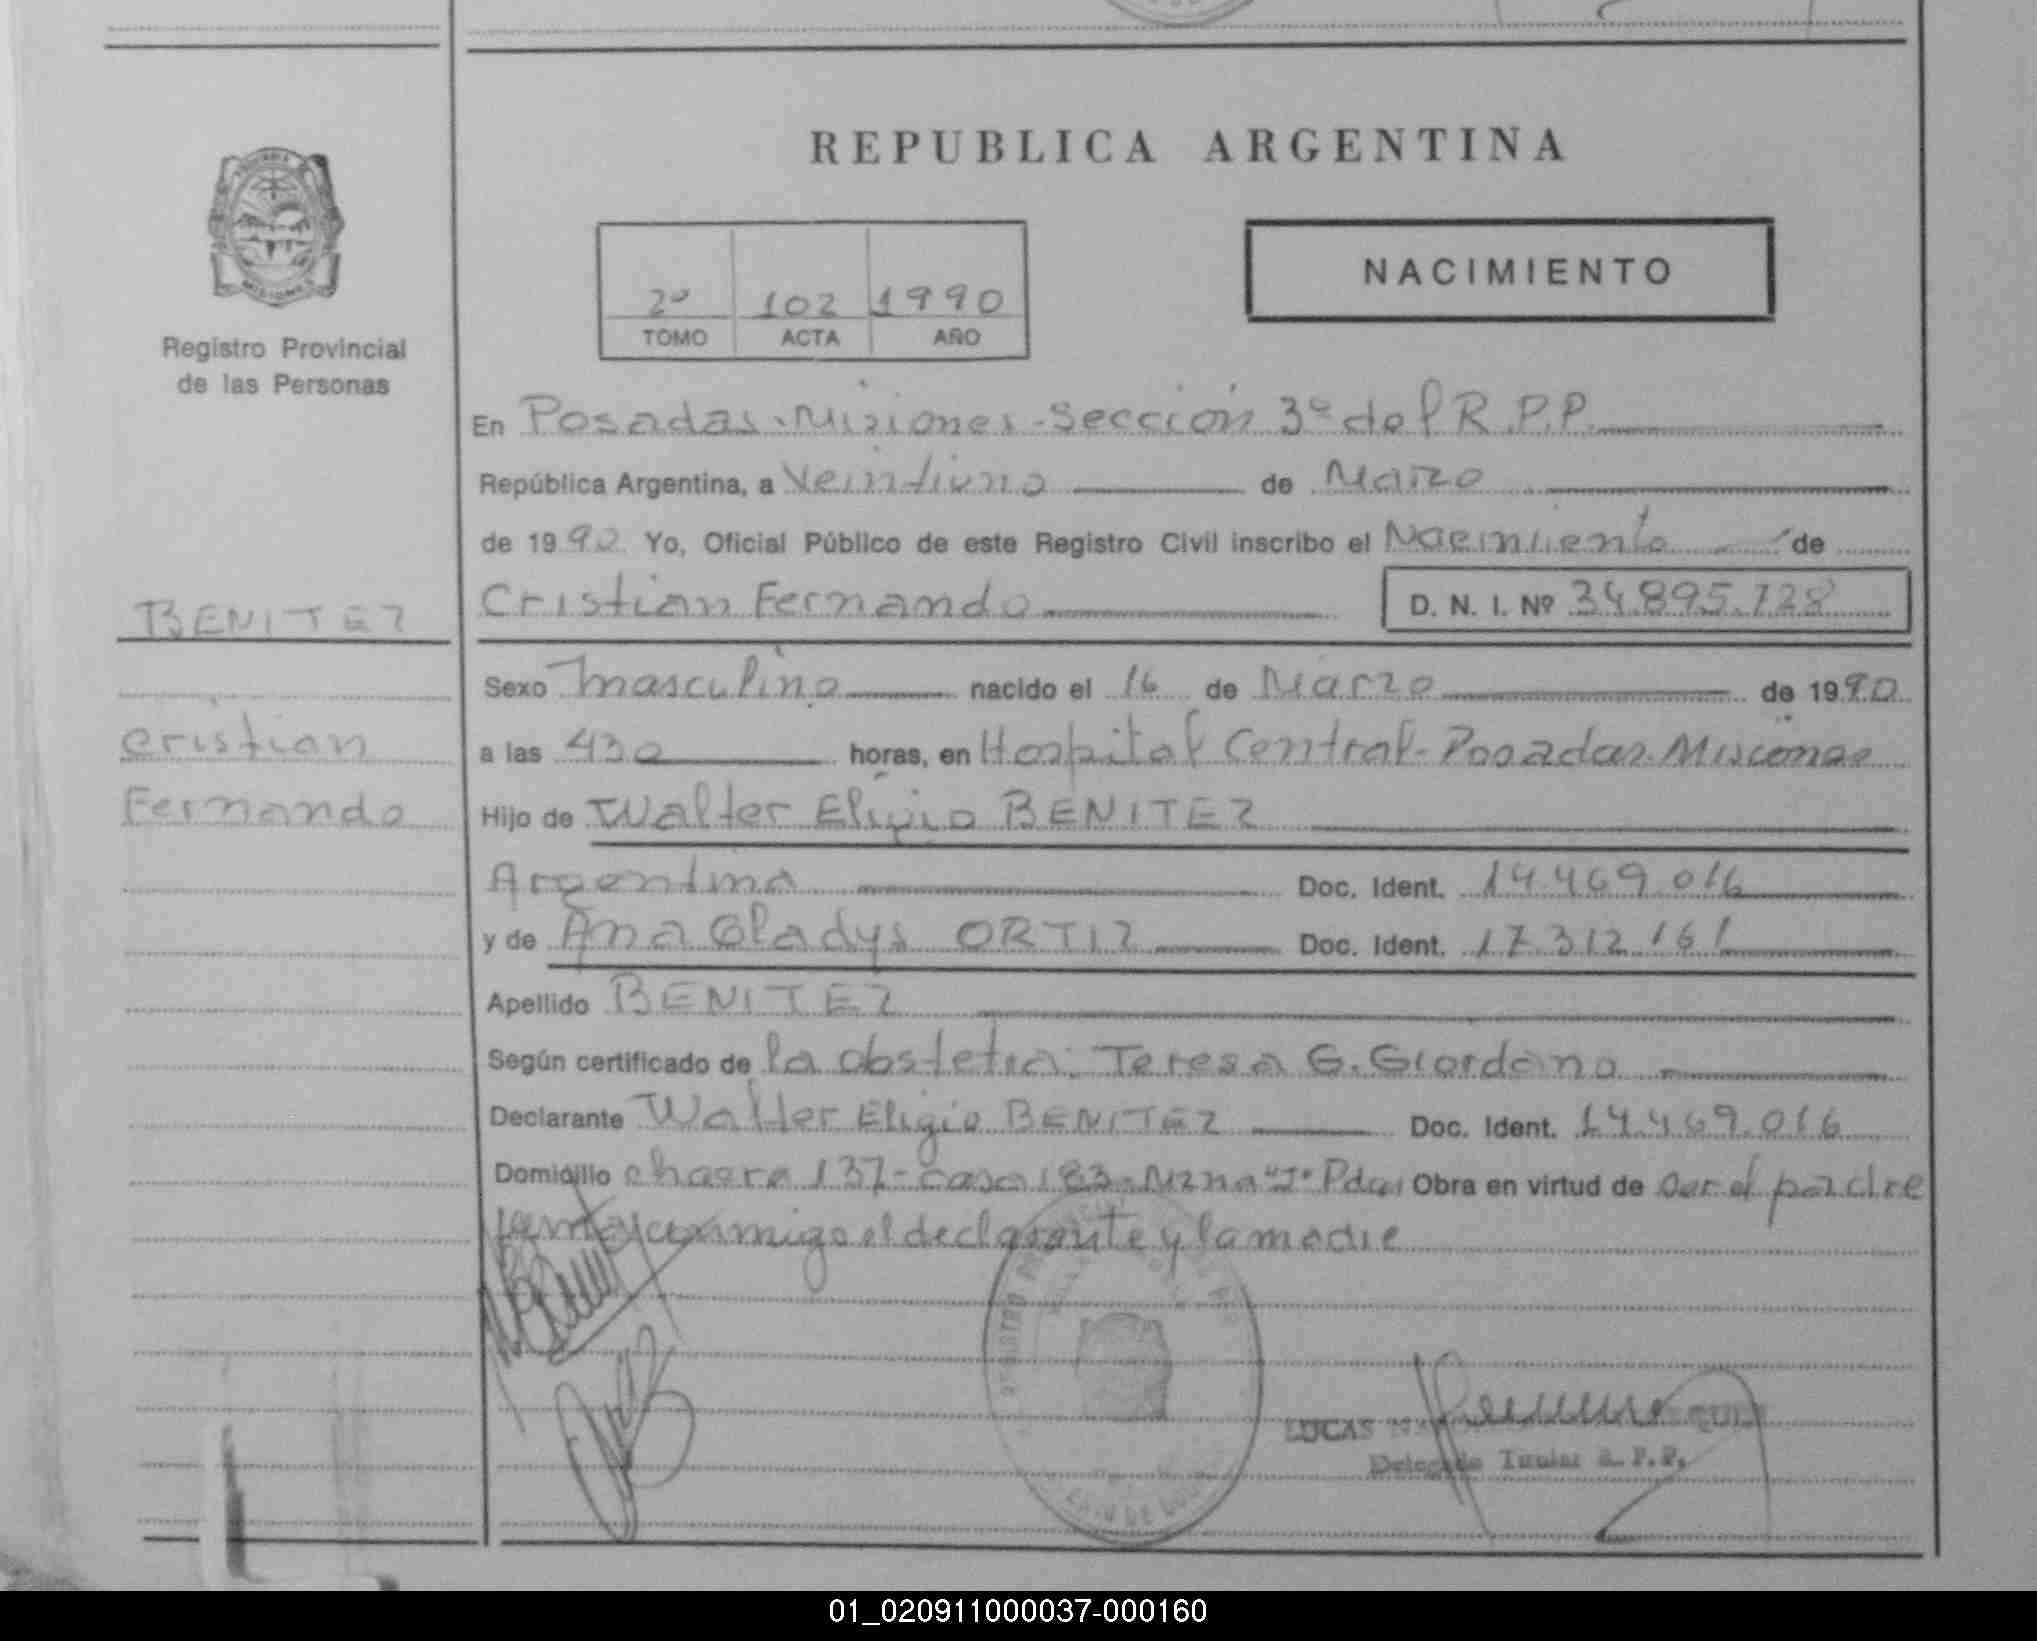 REPUBLICA ARGENTINA
NACIMIENTO
2º 102 1990
TOMO ACTA AÑO
Registro Provincial
de las Personas
En Posadas-Misiones-Sección 3º del R.P.P.
República Argentina, a Veintiuno de Marzo
de 1990 Yo, Oficial Público de este Registro Civil inscribo el Nacimiento de
Cristian Fernando D. N. I. Nº 34.895.728
BENITEZ
Cristian
Fernando
Sexo Masculino nacido el 16 de Marzo de 1990
a las 430 horas, en Hospital Central-Posadas-Misiones
Hijo de Walter Eligio BENITEZ
Argentina Doc. Ident. 14.469.016
y de Ana Gladys ORTIZ Doc. Ident. 17.312.161
Apellido BENITEZ
Según certificado de la obstetra: Teresa G. Giordano
Declarante Walter Eligio BENITEZ Doc. Ident. 14.469.016
Domicilio chacra 137-casa 183-Mzna "J" Pdas Obra en virtud de ser el padre
conmigo el declarante y la madre
LUCAS
Delegado Titular R. P. P.
01_020911000037-000160